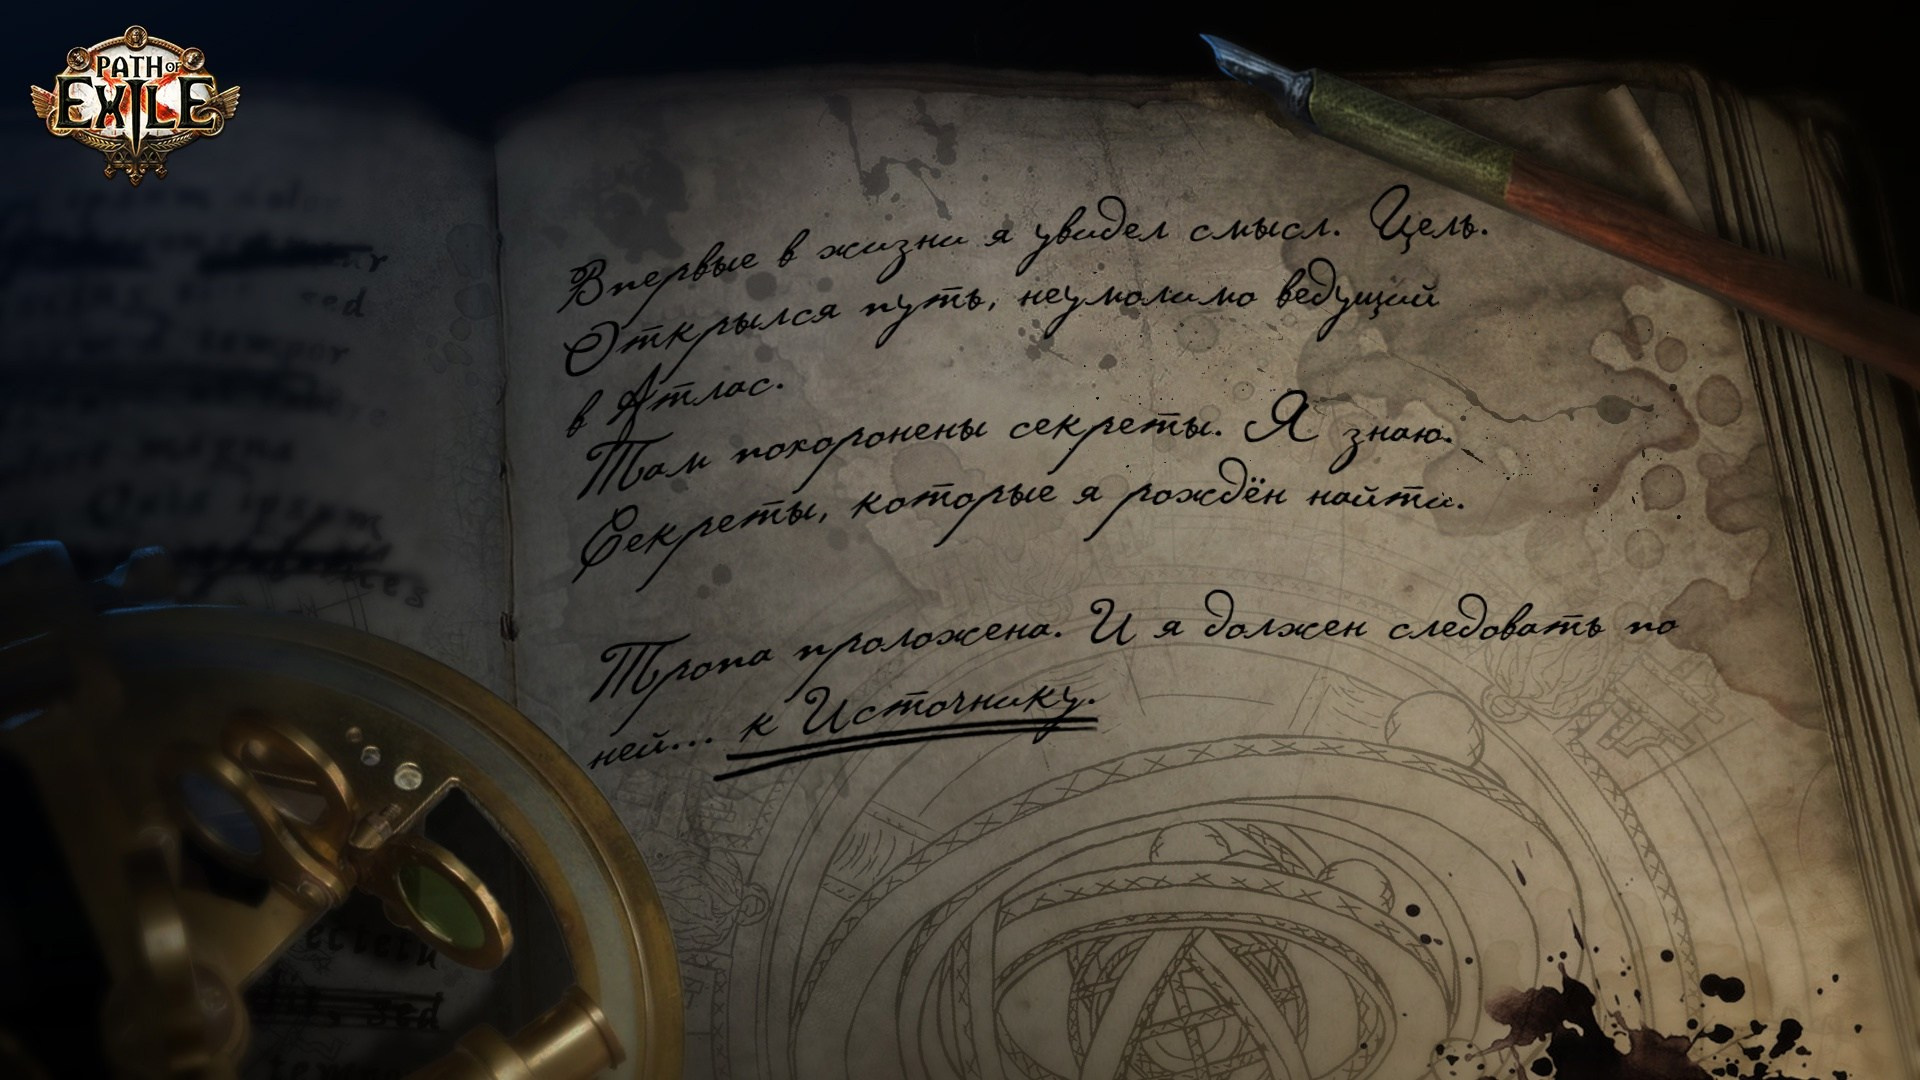 PATH OF
EXILE
Впервые в жизни я увидел смысл. Цель.
Открылся путь, неумолимо ведущий
в Атлас.
Там похоронены секреты. Я знаю.
Секреты, которые я рождён найти.
Тропа проложена. И я должен следовать по
ней... к Источнику.
sed
tempor
magna
Quis ipsum
sed